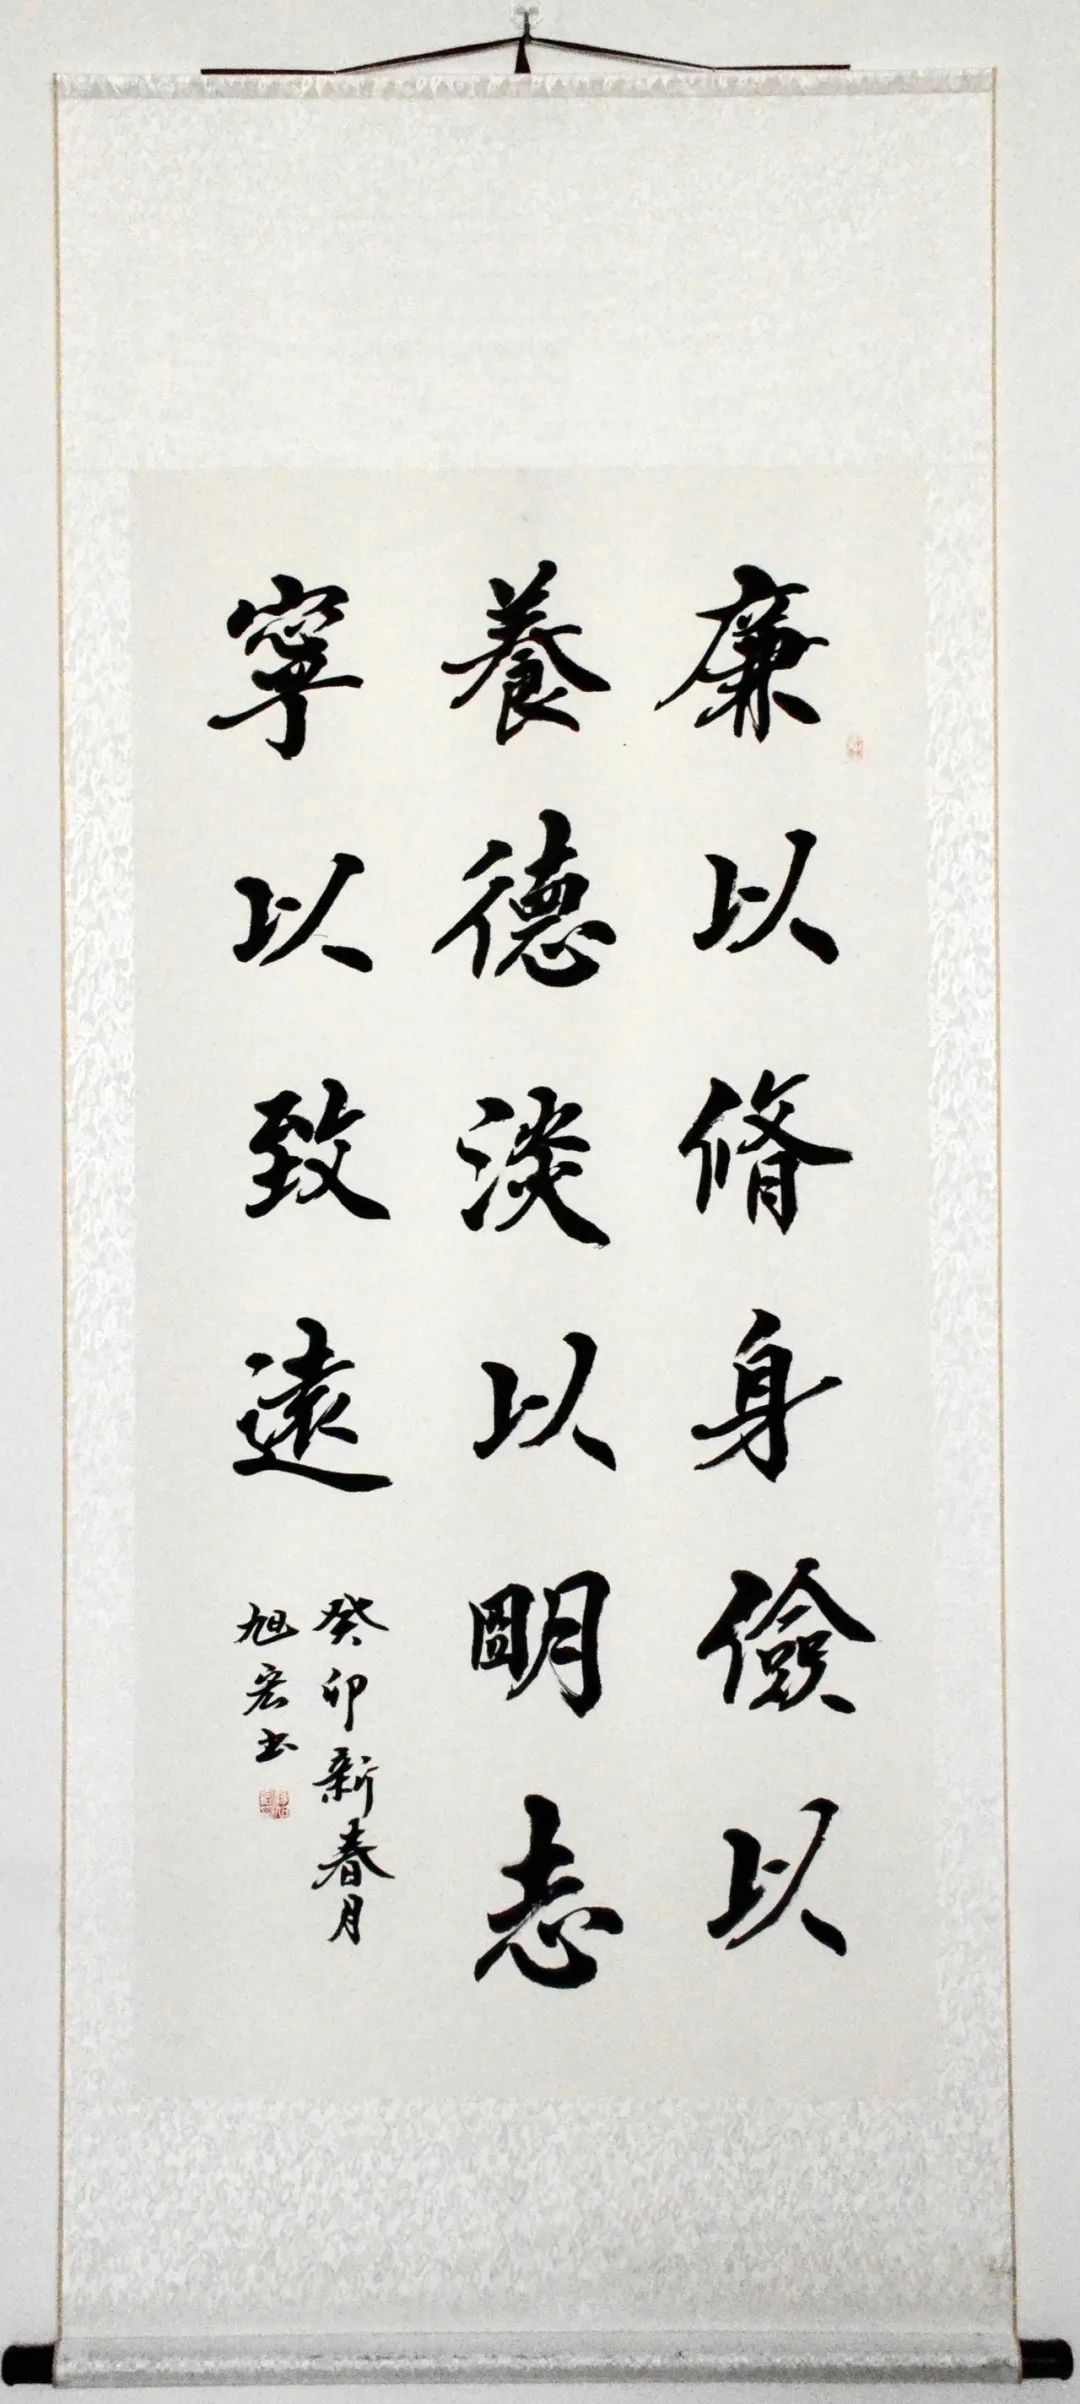 廉以脩身儉以
養德淡以明志
寧以致遠
癸卯新春月
旭宏书